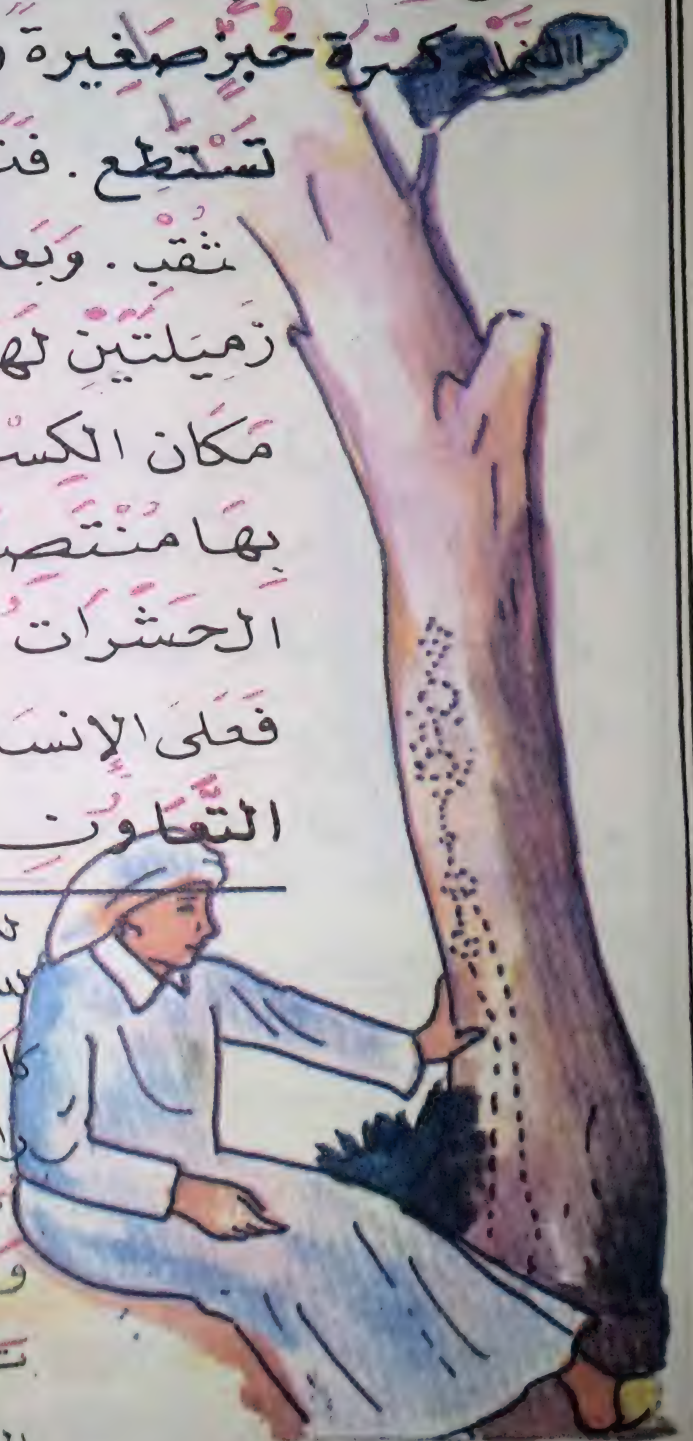 النملة كسرة خبز صغيرة
تَسْتَطِع . فَن
ثقْب . وَبَعد
زَمِيلَتَيْنِ لَهَ
مَكَان الكسْ
بِهَا مُنْتَص
الحَشَرَات
فَعَلَى الإنسَ
التَّعَاوُنِ